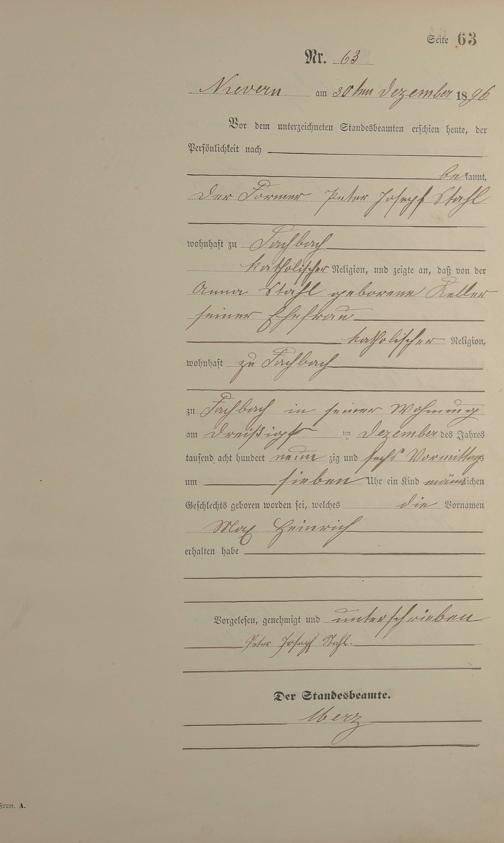 Seite 63
Nr. 63
Nievern am 30ten Dezember 1896
Vor dem unterzeichneten Standesbeamten erschien heute, der
Persönlichkeit nach
bekannt,
der Former Peter Joseph Stahl
wohnhaft zu Fachbach
katholischer Religion, und zeigte an, daß von der
Anna Stahl geborene Keller
seiner Ehefrau
katholischer Religion,
wohnhaft zu Fachbach
zu Fachbach in seiner Wohnung
am dreißigsten Dezember des Jahres
tausend acht hundert neunzig und sechs Vormittags
um sieben Uhr ein Kind männlichen
Geschlechts geboren worden sei, welches die Vornamen
Max Heinrich
erhalten habe
Vorgelesen, genehmigt und unterschrieben
Peter Josef Stahl.
Der Standesbeamte.
Merz
Form. A.